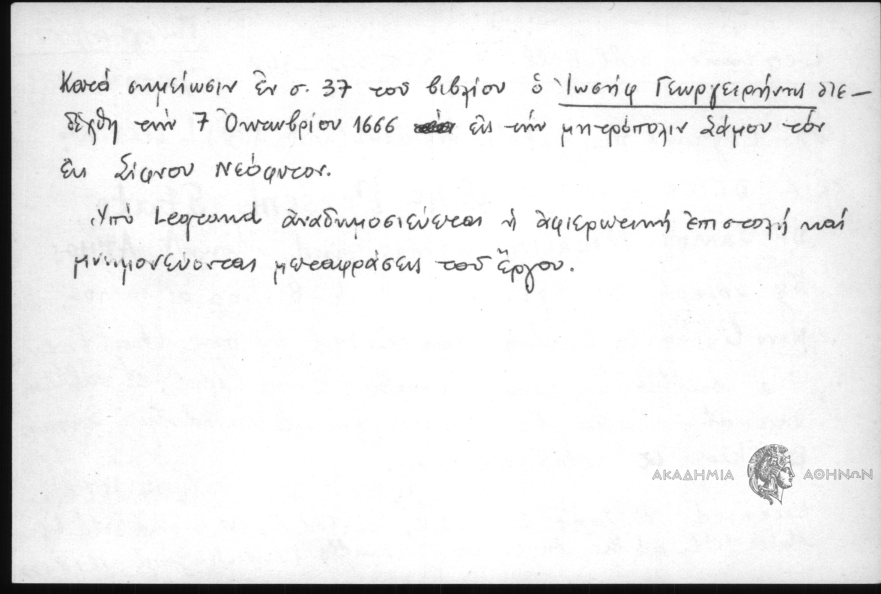 Κατά σημείωσιν ἐν σ. 37 τοῦ βιβλίου ὁ Ἰωσήφ Γεωργειρήνης διε-
δέχθη τήν 7 Ὀκτωβρίου 1666 εἰς τήν μητρόπολιν Σάμου τόν
ἐκ Σίφνου Νεόφυτον.
Ὑπό Legrand ἀναδημοσιεύεται ἡ ἀφιερωτική ἐπιστολή καί
μνημονεύονται μεταφράσεις τοῦ ἔργου.
ΑΚΑΔΗΜΙΑ ΑΘΗΝΩΝ